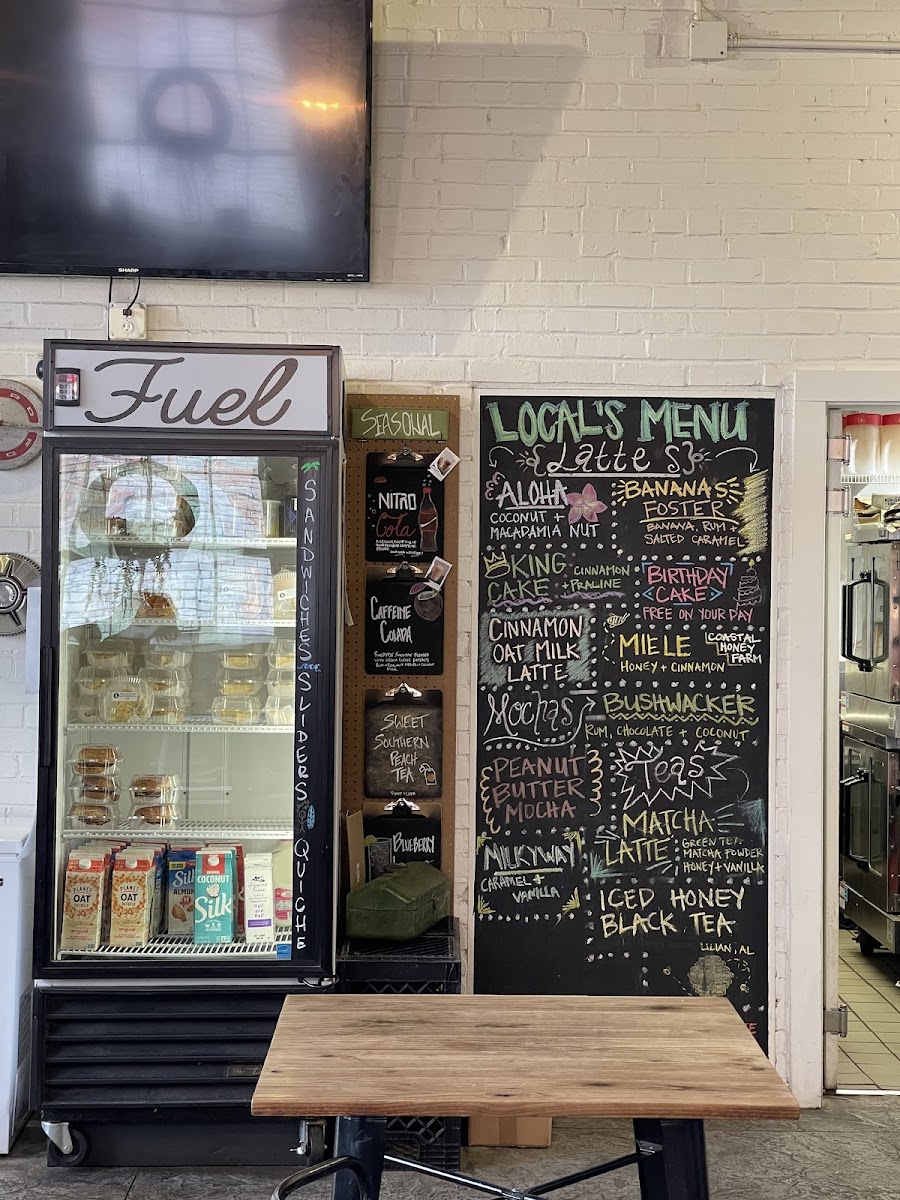 SHARP
Fuel
SANDWICHES
SLIDERS
QUICHE
PLANET
OAT
original
PLANET
OAT
original
Silk
ALMOND
COCONUT
Silk
Half and
Half
SEASONAL
NITRO
Cola
CAFFEINE
COLADA
SWEET
SOUTHERN
PEACH
TEA
BLUEBERRY
LOCAL'S MENU
{Latte s}
ALOHA
COCONUT +
MACADAMIA NUT
KING
CAKE
CINNAMON
+PRALINE
CINNAMON
OAT MILK
LATTE
Mochas
PEANUT
BUTTER
MOCHA
MILKYWAY
CARAMEL +
VANILLA
BANANAS
FOSTER
BANANA, RUM +
SALTED CARAMEL
BIRTHDAY
CAKE
FREE ON YOUR DAY
MIELE
HONEY + CINNAMON
COASTAL
HONEY
FARM
BUSHWACKER
RUM, CHOCOLATE + COCONUT
Teas
MATCHA
LATTE
GREEN TEA,
MATCHA POWDER
HONEY+VANILLA
ICED HONEY
BLACK TEA
LILIAN, AL